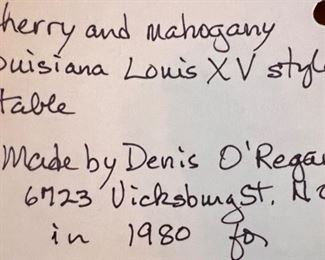 cherry and mahogany
ouisiana Louis XV style
table
Made by Denis O'Regan
6723 Vicksburg St. N.O
in 1980 for